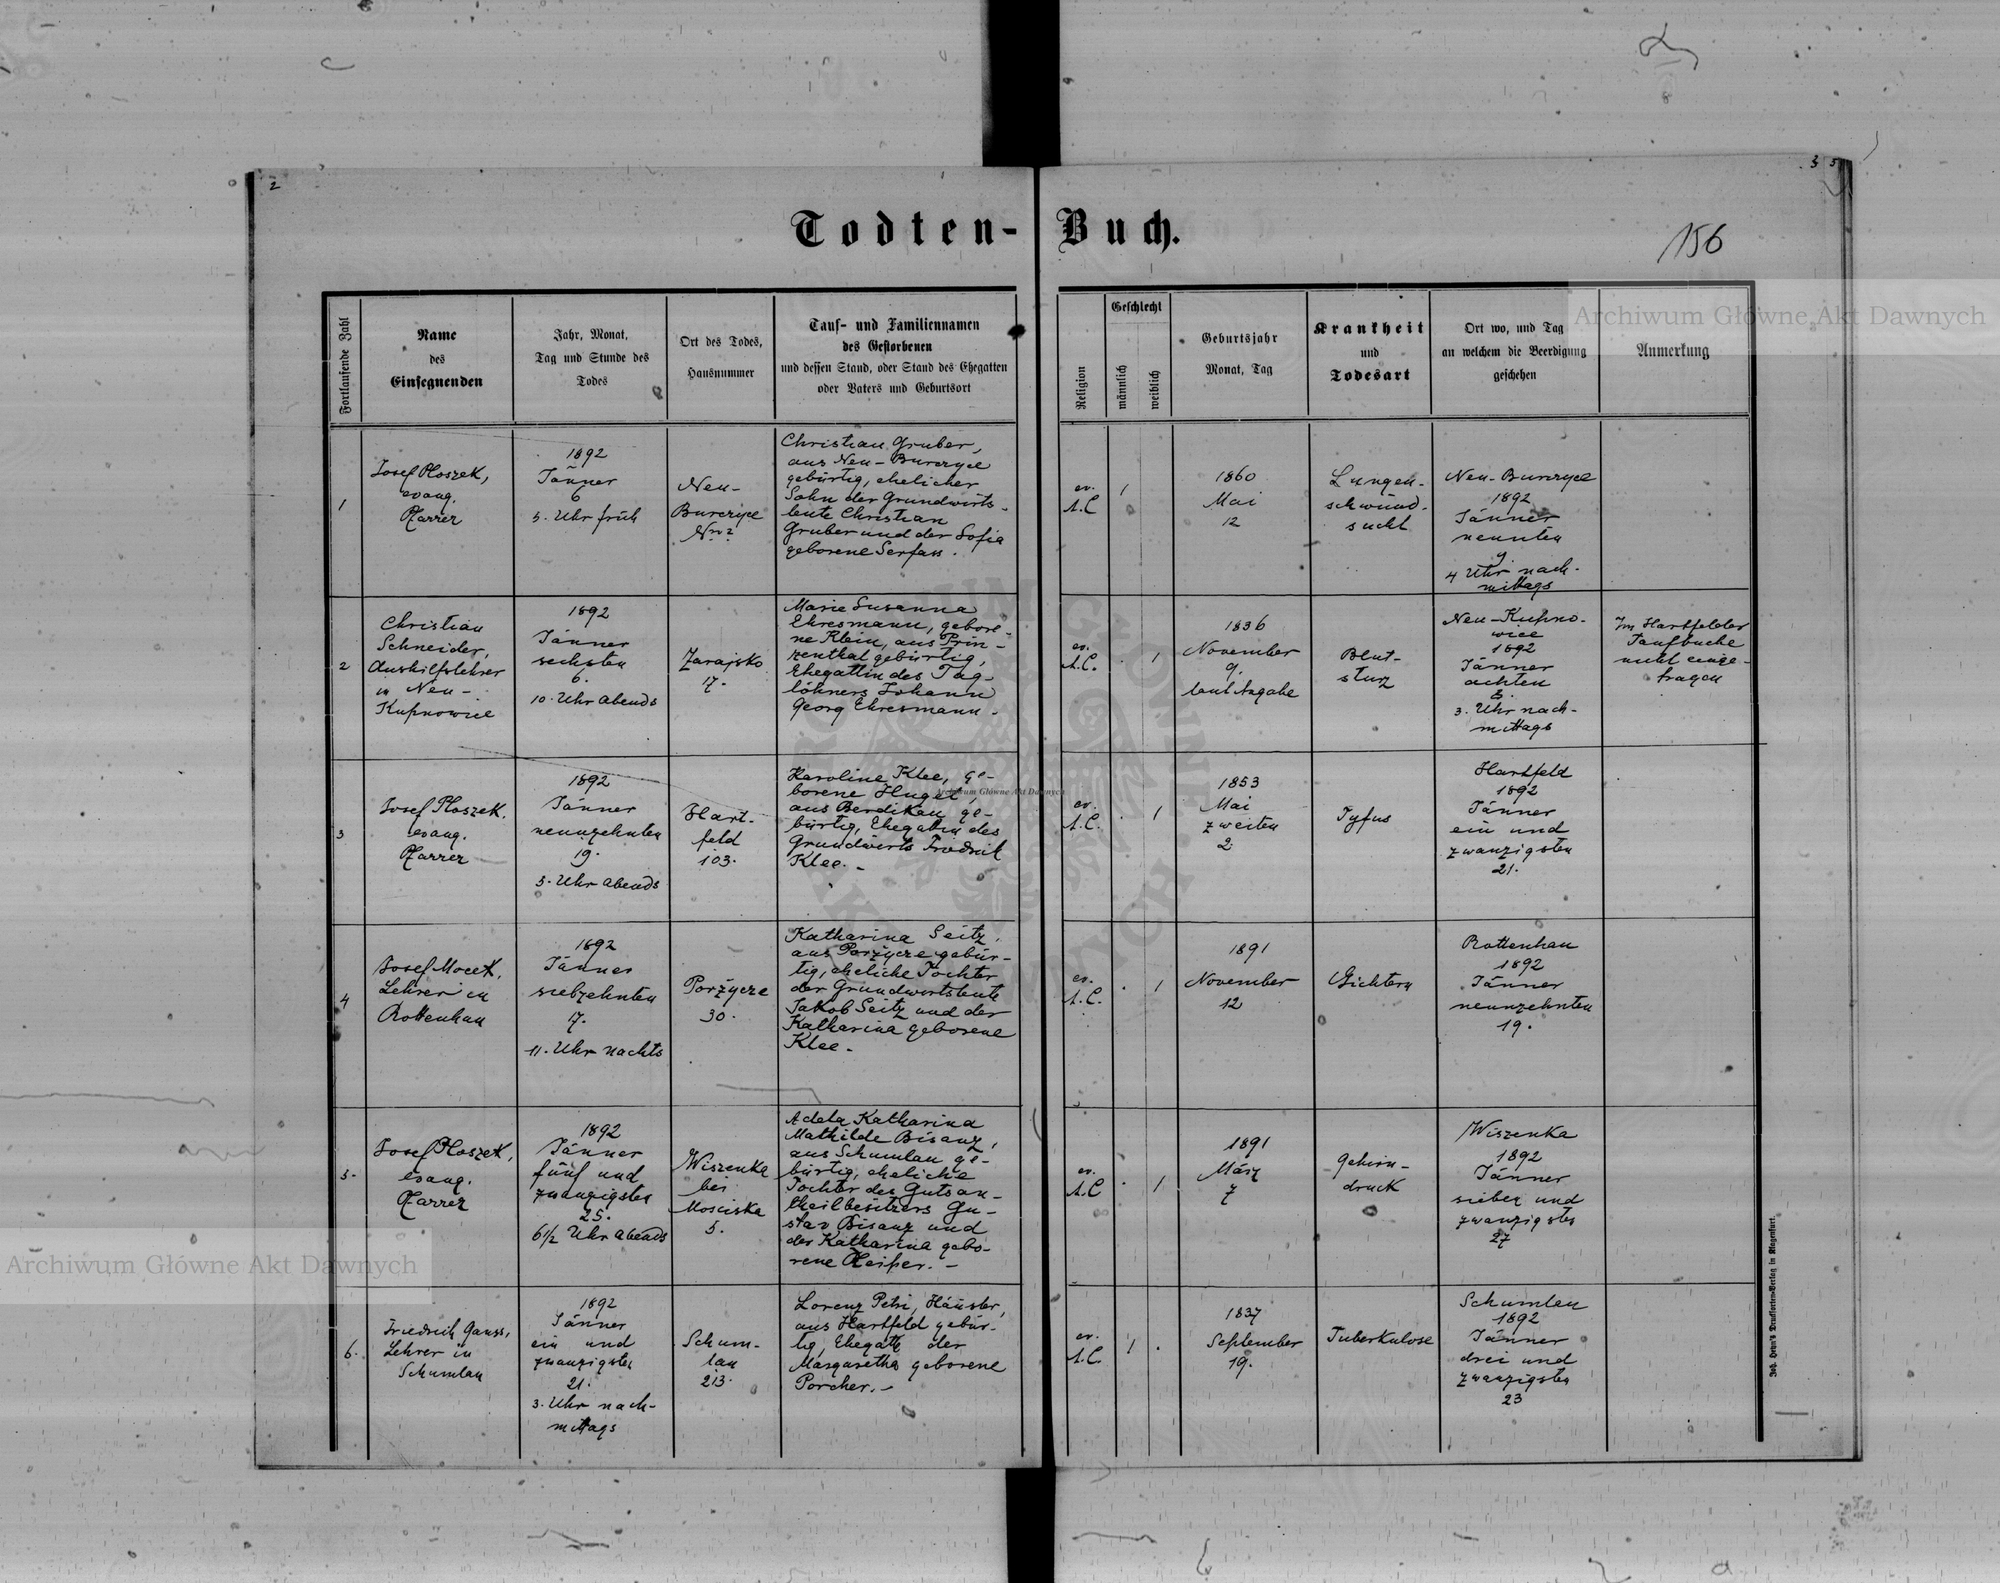 2
3 5
Todten-Buch.
156
Fortlaufende Zahl
Name
des
Einsegnenden
Jahr, Monat,
Tag und Stunde des
Todes
Ort des Todes,
Hausnummer
Tauf- und Familiennamen
des Gestorbenen
und dessen Stand, oder Stand des Ehegatten
oder Vaters und Geburtsort
Religion
Geschlecht
männlich
weiblich
Geburtsjahr
Monat, Tag
Krankheit
und
Todesart
Ort wo, und Tag
an welchem die Beerdigung
geschehen
Anmerkung
Archiwum Główne Akt Dawnych
1
Josef Ploszek,
evang.
Pfarrer
1892
Jänner
6
5. Uhr früh
Neu-
Burczyce
Nro 2
Christian Gruber,
aus Neu-Burczyce
gebürtig, ehelicher
Sohn der Grundwirts-
leute Christian
Gruber und der Sofia
geborene Serfass.
ev.
A.C
1
1860
Mai
12
Lungen-
schwind-
sucht
Neu-Burczyce
1892
Jänner
neunten
9.
4 Uhr nach-
mittags
2
Christian
Schneider,
Aushilfslehrer
in Neu-
Kupnowice
1892
Jänner
sechsten
6.
10. Uhr abends
Zarajsko
17.
Marie Susanna
Ehresmann, gebore-
ne Klein, aus Prin-
zenthal gebürtig,
Ehegattin des Tag-
löhners Johann
Georg Ehresmann.
ev.
A.C.
1
1836
November
9.
laut Angabe
Blut-
sturz
Neu-Kupno-
wice
1892
Jänner
achten
8.
3. Uhr nach-
mittags
Im Hartfelder
Taufbuche
nicht einge-
tragen
3
Josef Ploszek.
evang.
Pfarrer
1892
Jänner
neunzehnten
19.
5. Uhr abends
Hart-
feld
103.
Karoline Klee, ge-
borene Hugel,
aus Berdikau ge-
bürtig, Ehegattin des
Grundwirts Friedrich
Klee. -
ev.
A.C.
1
1853
Mai
zweiten
2
Tyfus
Hartfeld
1892
Jänner
ein und
zwanzigsten
21.
4
Josef Mocek,
Lehrer in
Rottenhan
1892
Jänner
siebzehnten
17.
11. Uhr nachts
Porżycze
30.
Katharina Seitz,
aus Porżycze gebür-
tig, eheliche Tochter
der Grundwirtsleute
Jakob Seitz und der
Katharina geborene
Klee.
ev.
A.C.
1
1891
November
12
Gichtern
Rottenhan
1892
Jänner
neunzehnten
19.
5.
Josef Ploszek,
evang.
Pfarrer
1892
Jänner
fünf und
zwanzigsten
25.
6½ Uhr abends
Wiszenka
bei
Mosciska
5.
Adela Katharina
Mathilde Bisanz,
aus Schumlau ge-
bürtig, eheliche
Tochter des Gutsan-
theilbesitzers Gu-
stav Bisanz und
der Katharina gebo-
rene
ev.
A.C
1
1891
März
7
Gehirn-
druck
Wiszenka
1892
Jänner
sieben und
zwanzigsten
27
6.
Friedrich Gauss,
Lehrer in
Schumlau
1892
Jänner
ein und
zwanzigsten
21.
3. Uhr nach-
mittags
Schum-
lau
213.
Lorenz Petri, Häusler,
aus Hartfeld gebür-
tig, Ehegatte der
Margaretha geborene
Porcher. -
ev.
A.C.
1
1837
September
19.
Tuberkulose
Schumlau
1892
Jänner
drei und
zwanzigsten
23
Archiwum Główne Akt Dawnych
Archiwum Główne Akt Dawnych